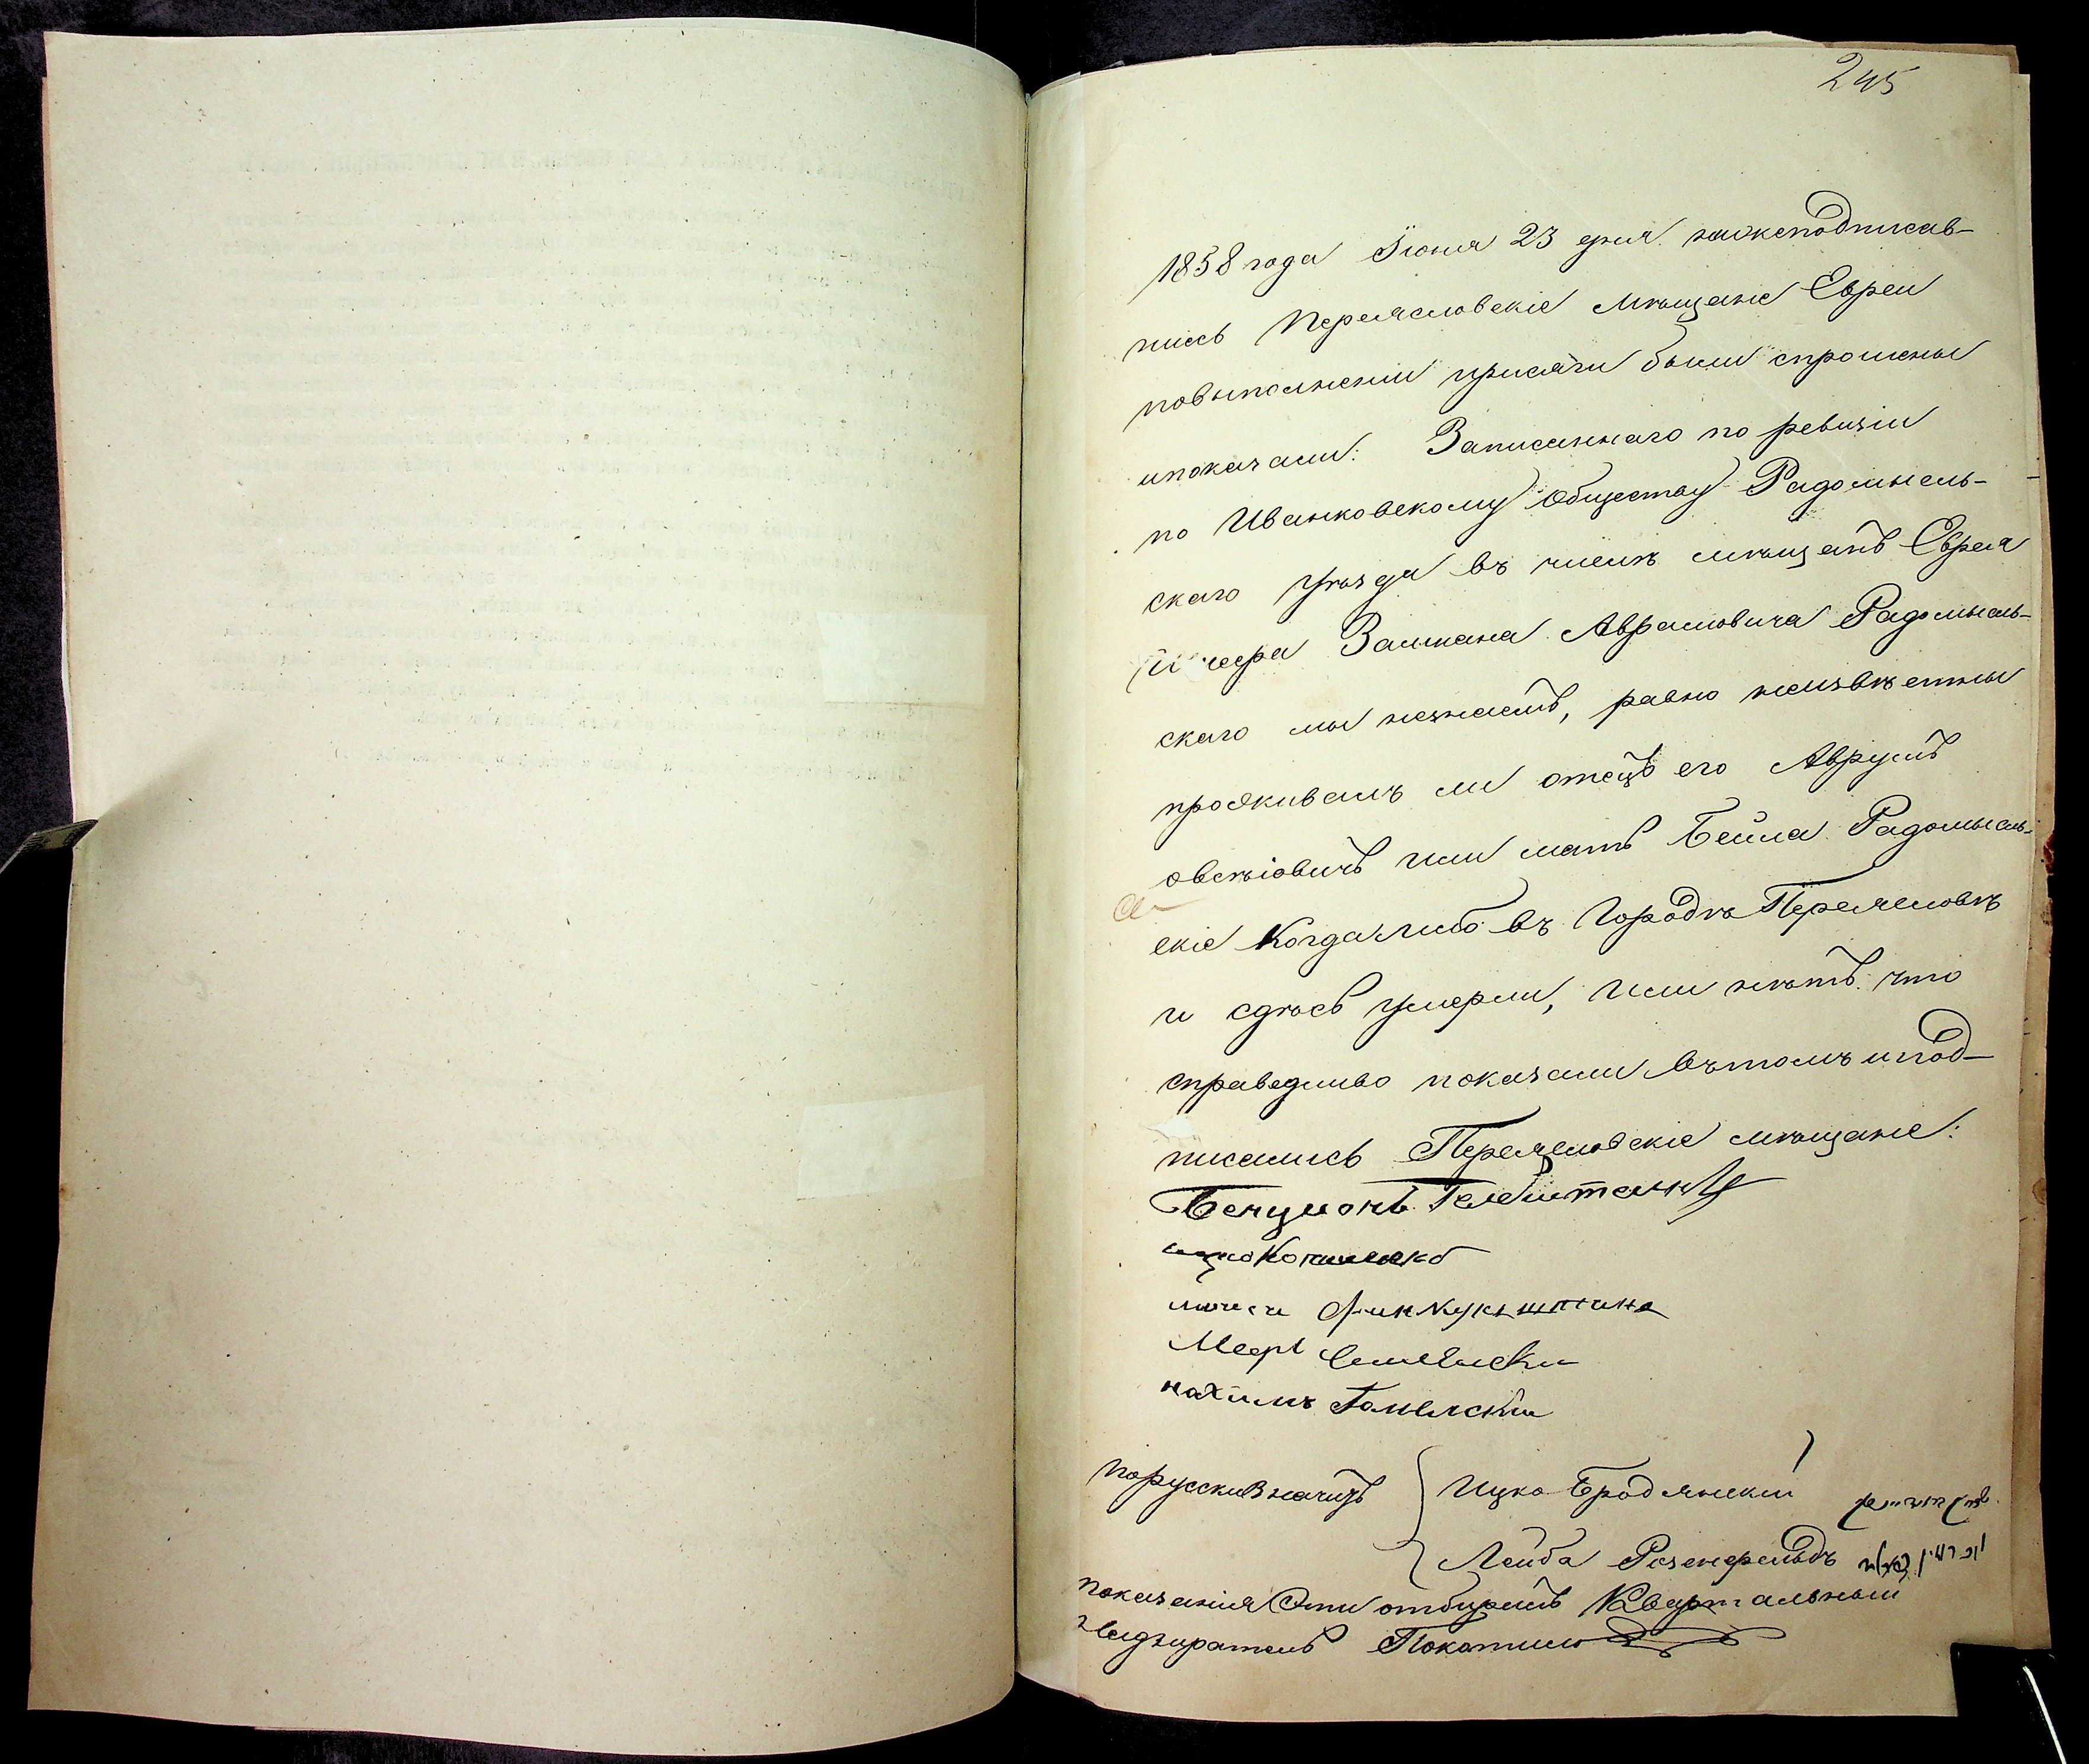 245
1858 года Іюня 23 дня нижеподписав-
шись Переясловскіе Мѣщане Евреи
повыполненіи присяги были спрошены
ипоказали: Записаннаго по ревизіи
по Иванковскому обществу Радомысль-
скаго уѣзда въ числѣ мѣщанъ Еврея
Залмана Аврамовича Радомысль-
скаго мы незнаемъ, равно неизвѣстны
проживалъ ли отецъ его Аврумъ
Овсѣіовичъ или мать Бейла Радомысль-
скіе Когда либо въ Городѣ Переясловѣ
и сдѣсь умерли, или нѣтъ. что
справедливо показали вътомъ и под-
писались Переясловскіе мѣщане:
Бенционъ
Ицко
Меер
нахимъ
порусски Значитъ Ицко Бродянскій
Лейба Розенфельдъ
показанія Эти отбиралъ Квартальный
Надзиратель Покотило